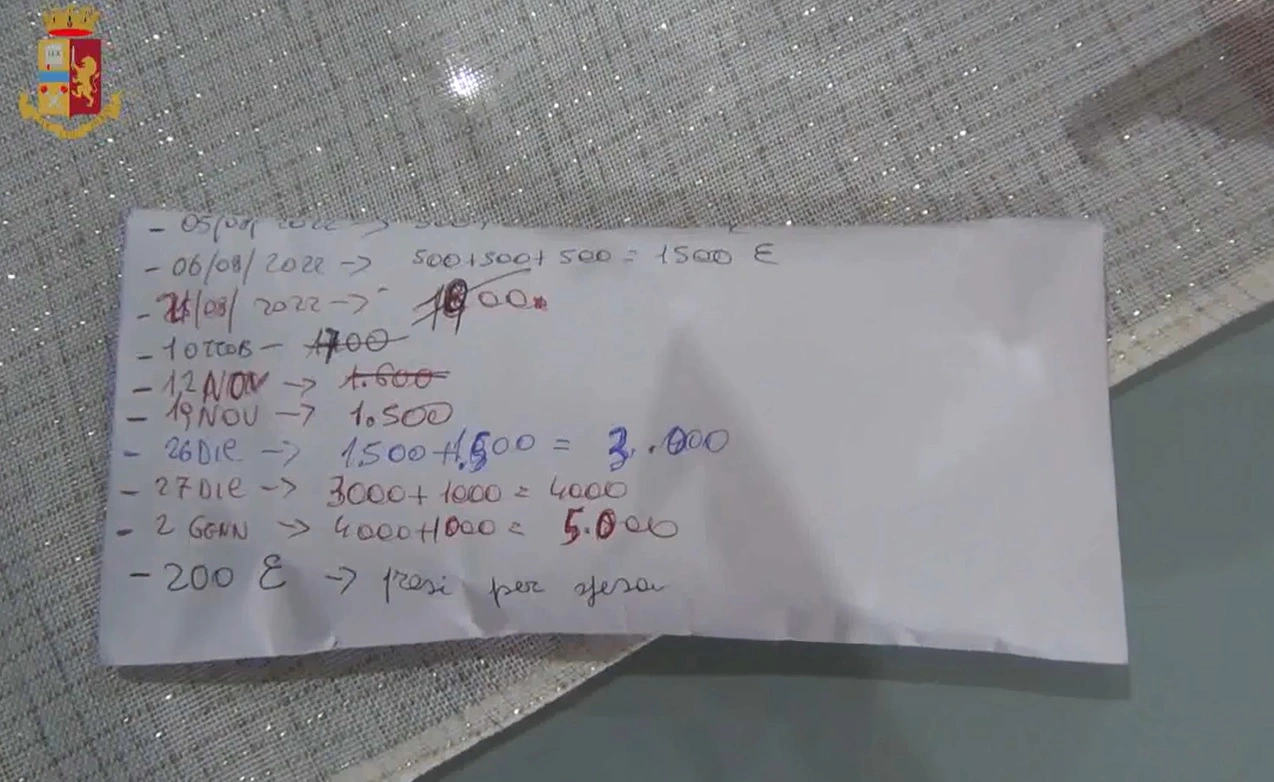 - 06/08/2022 -> 500+500+500 = 1500 €
/08/ 2022 ->
- 10 TTOB -
- 12 NOV -> 1.600
- 19 NOV -> 1.500
- 26 DIC -> 1.500+1.500 = 3.000
- 27 DIC -> 3000+1000 = 4000
- 2 GENN -> 4000+1000 = 5.000
- 200 € -> presi per spesa